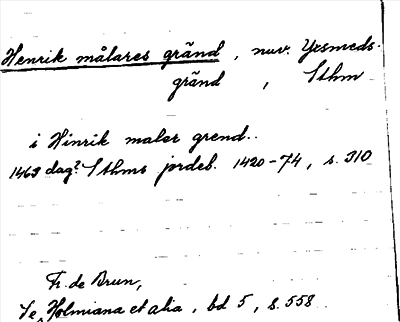 Henrik målares gränd, nuv. Yxsmeds-
gränd, Sthm
i Hinrik maler grend..
1463 dag? Sthms jordeb. 1420-74, s. 310
Fr. de Brun,
Se, Holmiana et alia, bd 5, s. 558